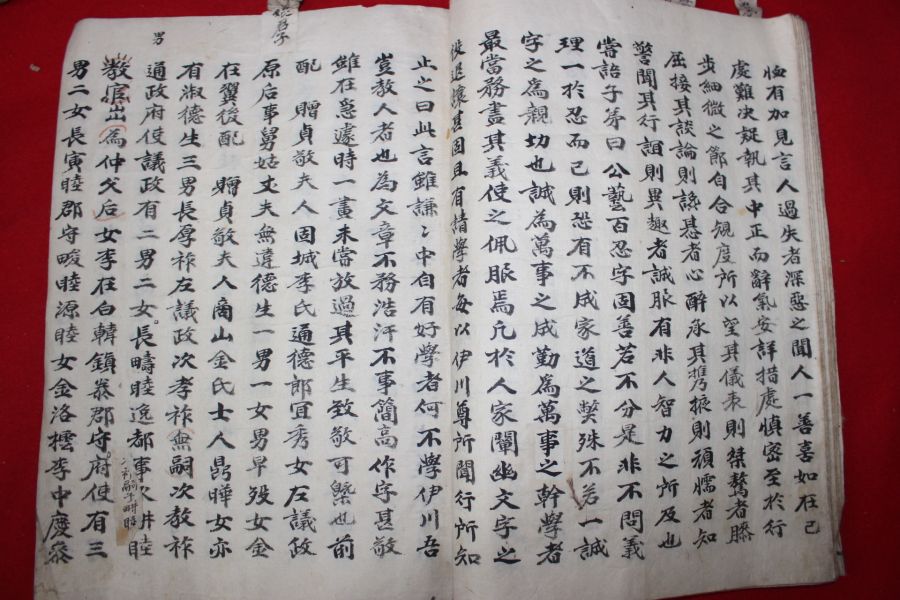 恤有加見言人過失者深惡之聞人一善喜如在己
處難決疑執其中正而辭氣安詳措處愼密至於行
步細微之節自合規度所以望其儀表則桀驁者
屈接其談論則談者心醉承其推乃掖則頑懦者知
警聞其行誼則異趣者誠服有非人智力之所及也
嘗詒子弟曰公藝百忍字固善若不分是非不問義
理一於忍而已則恐有不成家道之弊殊不若一誠
字之爲親切也誠爲萬事之成勤爲萬事之幹學者
最當務盡其義使之佩服焉凡於人家闡幽文字之
役退讓甚固且有請學者每以伊川尊所聞行所知
止之曰此言雖謙〻中自有好學者何不學伊川吾
豈敎人者也爲文章不務浩汗不事簡高作字甚敬
雖在悤遽時一畫未嘗放過其平生致敬可槩也前
配 贈貞敬夫人固城李氏通德郎宜秀女左議政
原后事舅姑丈夫無違德生一男一女男早歿女金
在翼後配 贈貞敬夫人商山金氏士人鼎曄女亦
有淑德生三男長厚祚左議政次孝祚無嗣次敎祚
通政府使議政有二男二女長疇睦逸都事次 睦
敎官出爲仲父后女李在白韓鎭泰郡守府使有三
男二女長寅睦郡守畯睦源睦女金洛 李中慶
男